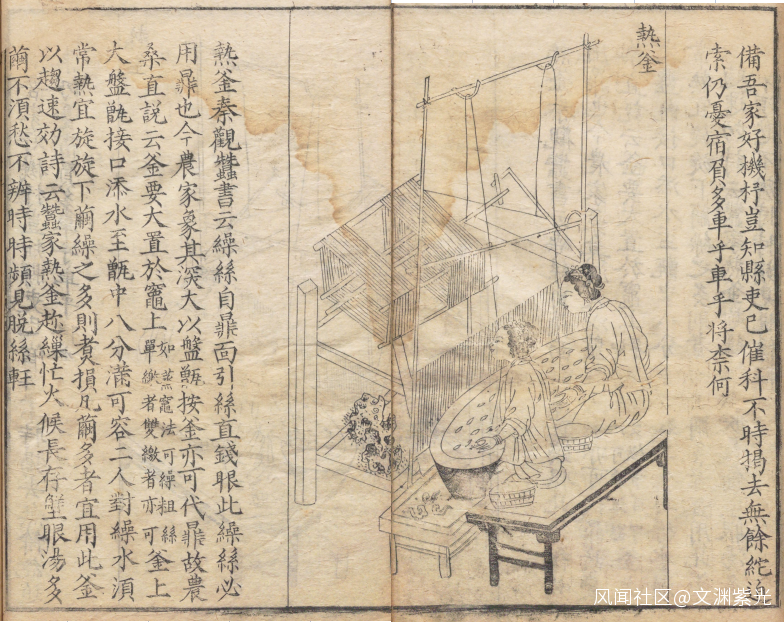 備吾家好機杼豈知縣吏已催科不時揭去無餘紽迨
索仍憂宿負多車乎車乎將柰何
熱釜
熱釜秦觀蠶書云繰絲自鼎面引絲直錢眼此繰絲必
用鼎也今農家象其深大以盤甑按釜亦可代鼎故農
桑直說云釜要大置於竈上如蒸竈法可繰粗絲單繳者雙繳者亦可釜上
大盤甑接口添水至甑中八分滿可容二人對繰水須
常熱宜旋旋下繭繰之多則煑損凡繭多者宜用此釜
以趨速効詩云蠶家熱釜趂繅忙火候長存蟹眼湯多
繭不須愁不辦時時頻見脫絲軠
风闻社区@文渊紫光